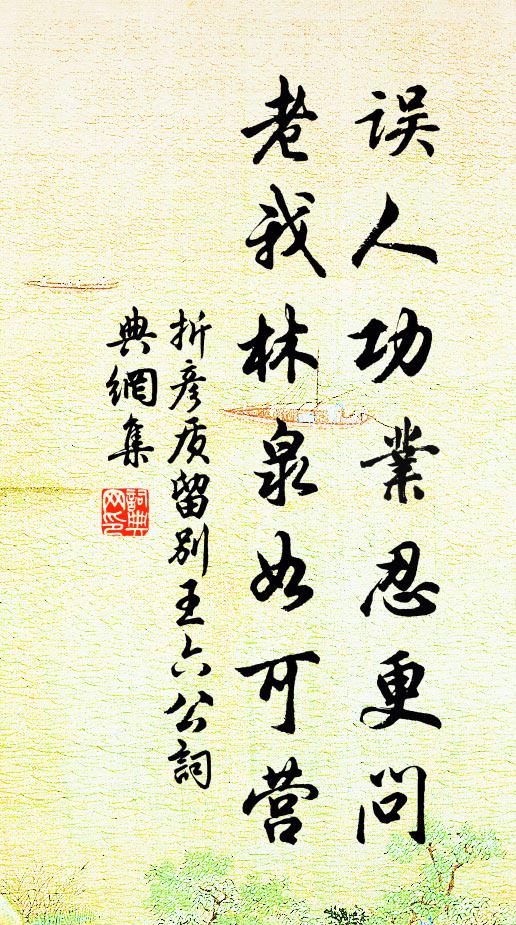 误人功業忍更问
老我林泉如可营
折彦质留别王六公詞
典網集
詞典网印